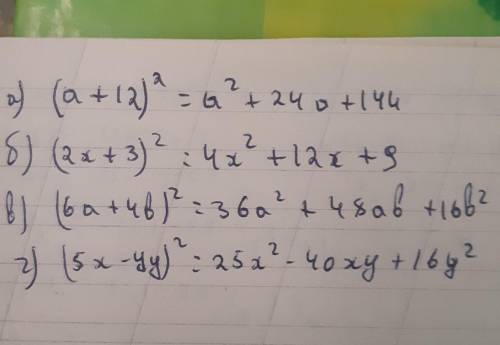 а) (a+12)² = a² + 24a + 144
б) (2x+3)² = 4x² + 12x + 9
в) (6a+4b)² = 36a² + 48ab + 16b²
г) (5x-4y)² = 25x² - 40xy + 16y²